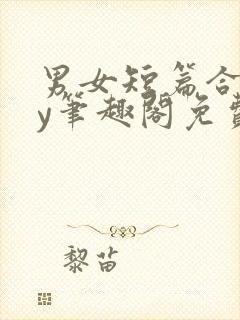 男女短篇合
y筆趣閣免費
黎苗